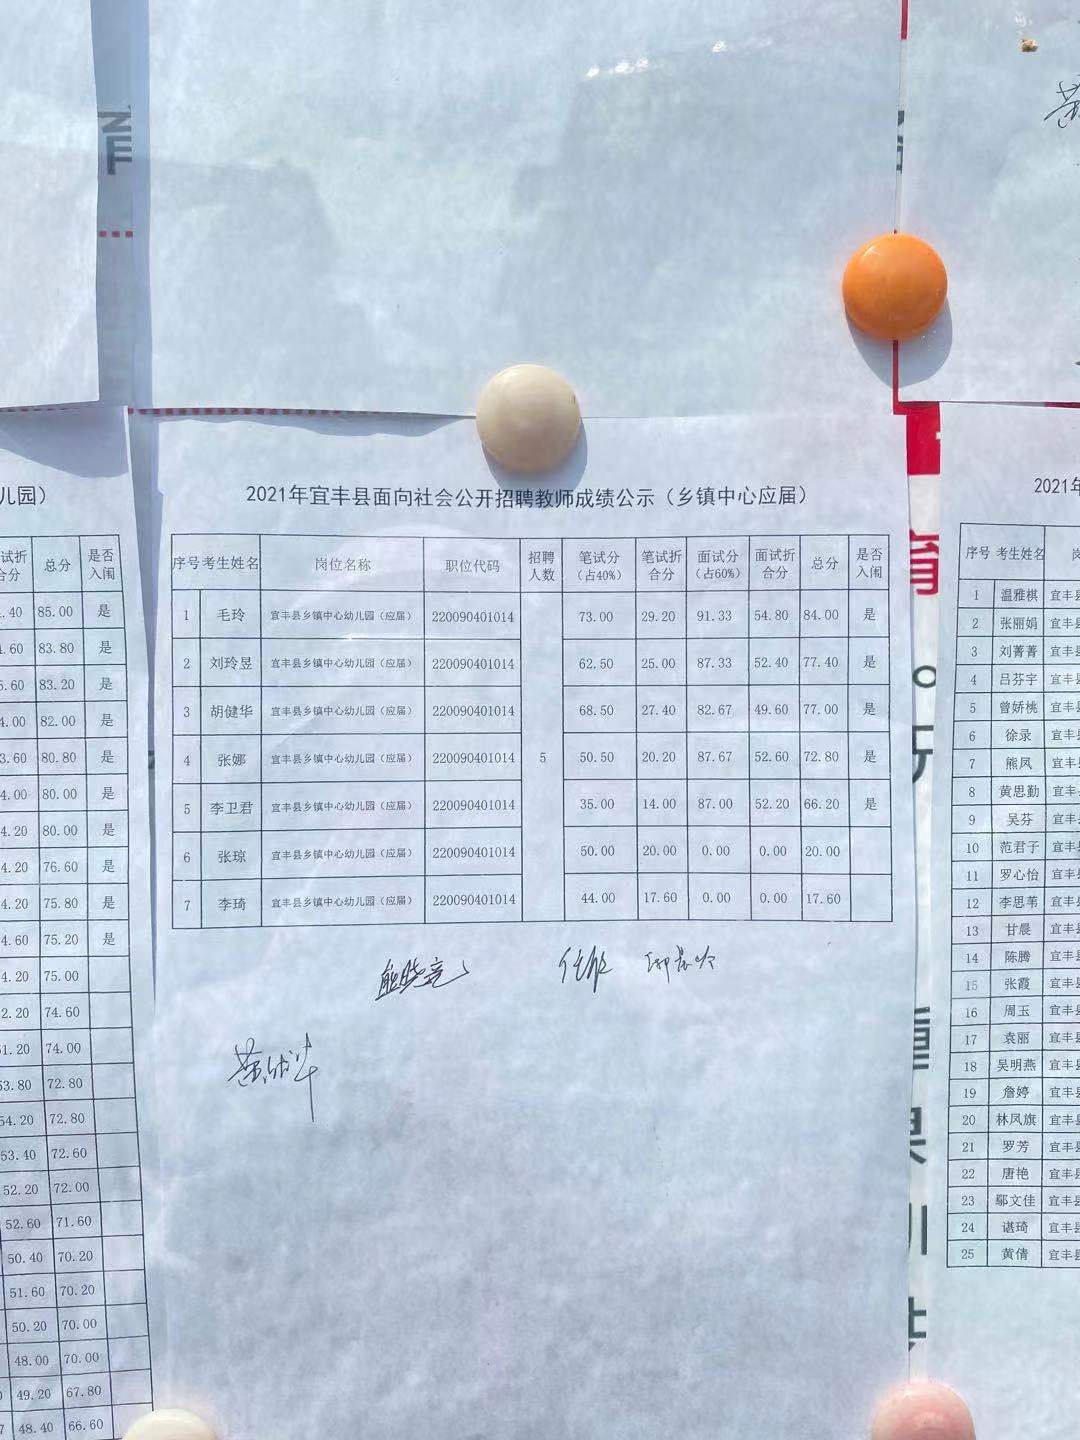 儿园）
试折
合分 总分 是否
入闱
.40 85.00 是
.60 83.80 是
.60 83.20 是
.00 82.00 是
3.60 80.80 是
4.00 80.00 是
4.20 80.00 是
4.20 76.60 是
4.20 75.80 是
4.60 75.20 是
4.20 75.00
2.20 74.60
51.20 74.00
53.80 72.80
54.20 72.80
53.40 72.60
52.20 72.00
52.60 71.60
50.40 70.20
51.60 70.20
50.20 70.00
48.00 70.00
49.20 67.80
48.40 66.60
2021年宜丰县面向社会公开招聘教师成绩公示（乡镇中心应届）
序号 考生姓名 岗位名称 职位代码 招聘人数 笔试分（占40%） 笔试折合分 面试分（占60%） 面试折合分 总分 是否入闱
1 毛玲 宜丰县乡镇中心幼儿园（应届） 220090401014 73.00 29.20 91.33 54.80 84.00 是
2 刘玲昱 宜丰县乡镇中心幼儿园（应届） 220090401014 62.50 25.00 87.33 52.40 77.40 是
3 胡健华 宜丰县乡镇中心幼儿园（应届） 220090401014 68.50 27.40 82.67 49.60 77.00 是
4 张娜 宜丰县乡镇中心幼儿园（应届） 220090401014 5 50.50 20.20 87.67 52.60 72.80 是
5 李卫君 宜丰县乡镇中心幼儿园（应届） 220090401014 35.00 14.00 87.00 52.20 66.20 是
6 张琼 宜丰县乡镇中心幼儿园（应届） 220090401014 50.00 20.00 0.00 0.00 20.00
7 李琦 宜丰县乡镇中心幼儿园（应届） 220090401014 44.00 17.60 0.00 0.00 17.60
2021年
序号 考生姓名
1 温雅棋 宜丰县
2 张丽娟 宜丰县
3 刘菁菁 宜丰县
4 吕芬宇 宜丰县
5 曾娇桃 宜丰县
6 徐录 宜丰县
7 熊凤 宜丰县
8 黄思勤 宜丰县
9 吴芬 宜丰县
10 范君子 宜丰县
11 罗心怡 宜丰县
12 李思苇 宜丰县
13 甘晨 宜丰县
14 陈腾 宜丰县
15 张霞 宜丰县
16 周玉 宜丰县
17 袁丽 宜丰县
18 吴明燕 宜丰县
19 詹婷 宜丰县
20 林凤旗 宜丰县
21 罗芳 宜丰县
22 唐艳 宜丰县
23 鄢文佳 宜丰县
24 谌琦 宜丰县
25 黄倩 宜丰县
育